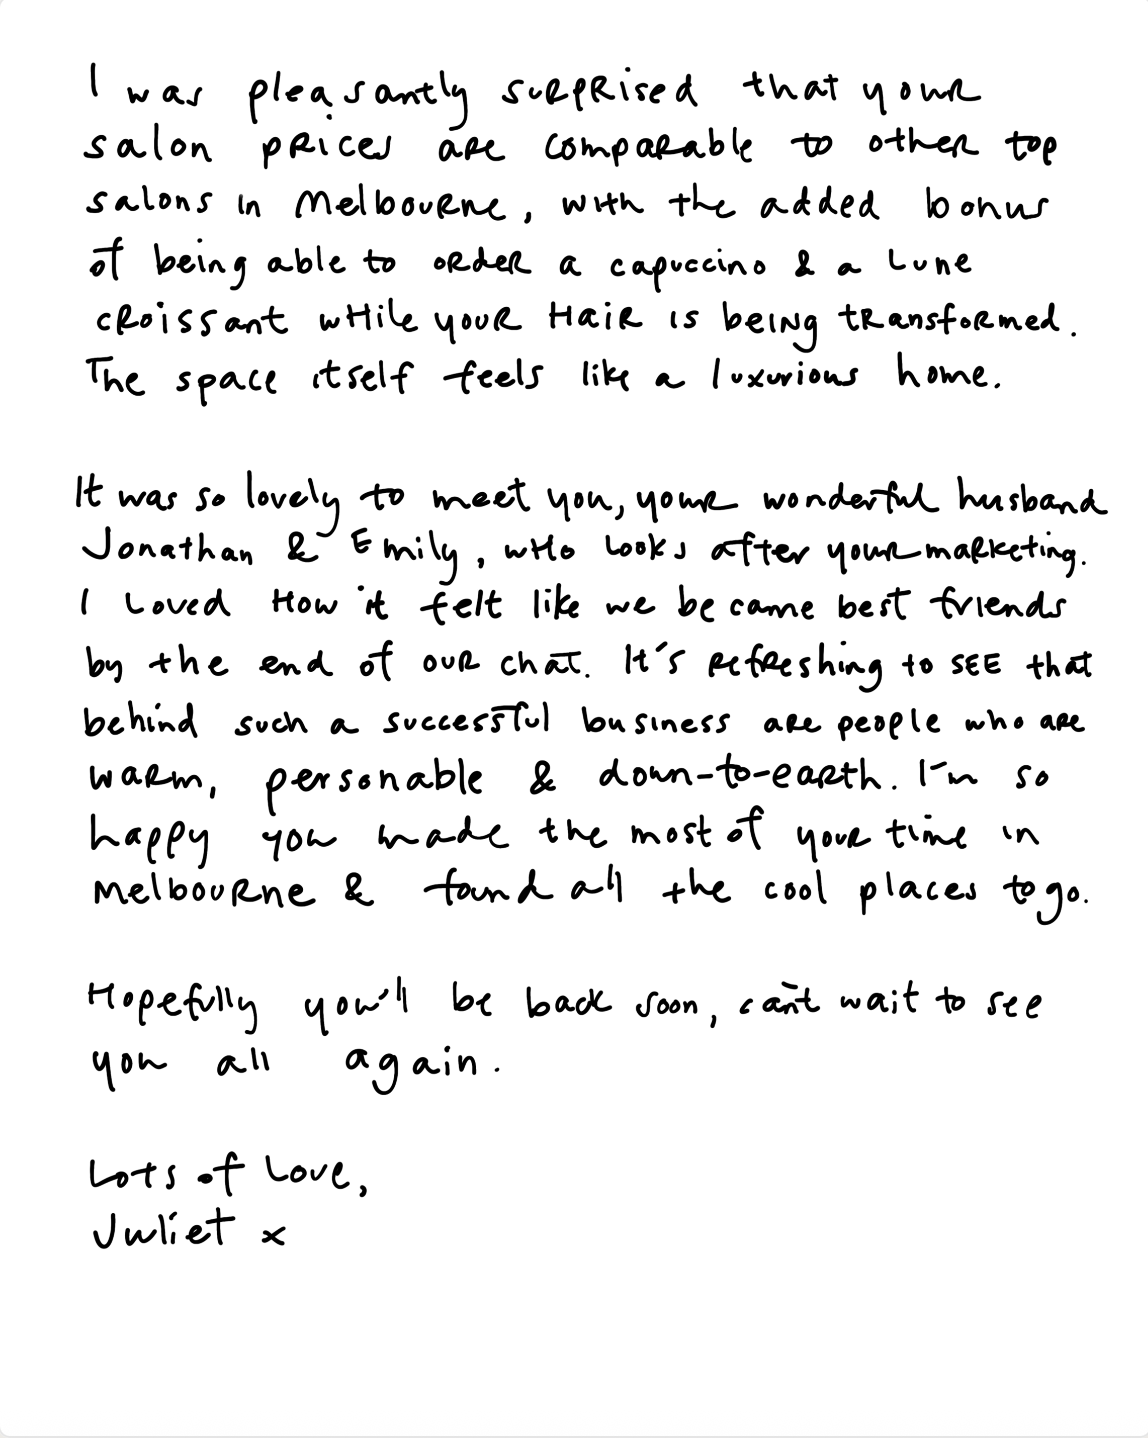 I was pleasantly surprised that your
salon prices are comparable to other top
salons in Melbourne, with the added bonus
of being able to order a capuccino & a Lune
croissant while your Hair is being transformed.
The space itself feels like a luxurious home.
It was so lovely to meet you, your wonderful husband
Jonathan & Emily, who looks after your marketing.
I loved how it felt like we became best friends
by the end of our chat. It's refreshing to SEE that
behind such a successful business are people who are
warm, personable & down-to-earth. I'm so
happy you made the most of your time in
Melbourne & found all the cool places to go.
Hopefully you'll be back soon, can't wait to see
you all again.
Lots of Love,
Juliet x